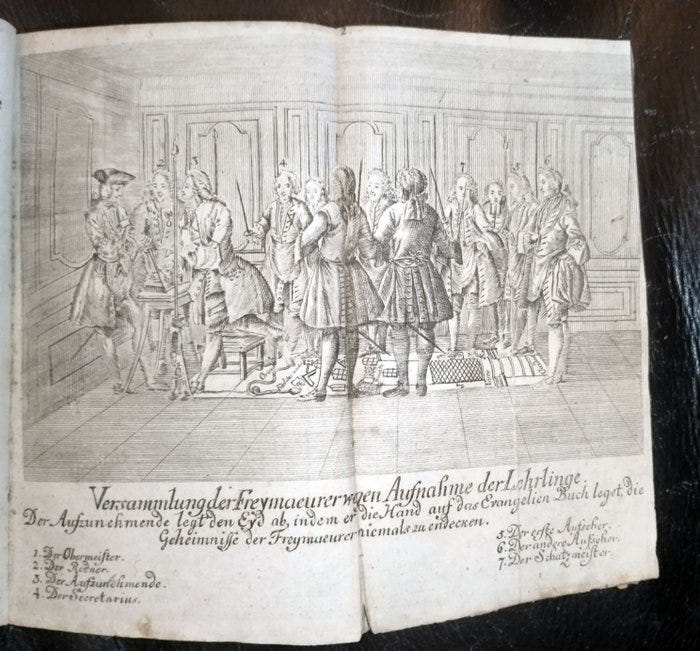 2.
2 3 4 7 5 6
Versammlung der Freymaeurer wegen Aufnahme der Lehrlinge.
Der Aufzunehmende legt den Eyd ab, indem er die Hand auf das Evangelien Buch leget, die
Geheimnisse der Freymaeurer niemals zu endecken.
1. Der Obermeister.
2. Der Redner.
3. Der Aufzunehmende.
4. Der Secretarius.
5. Der erste Aufseher.
6. Der andere Aufseher.
7. Der Schatzmeister.